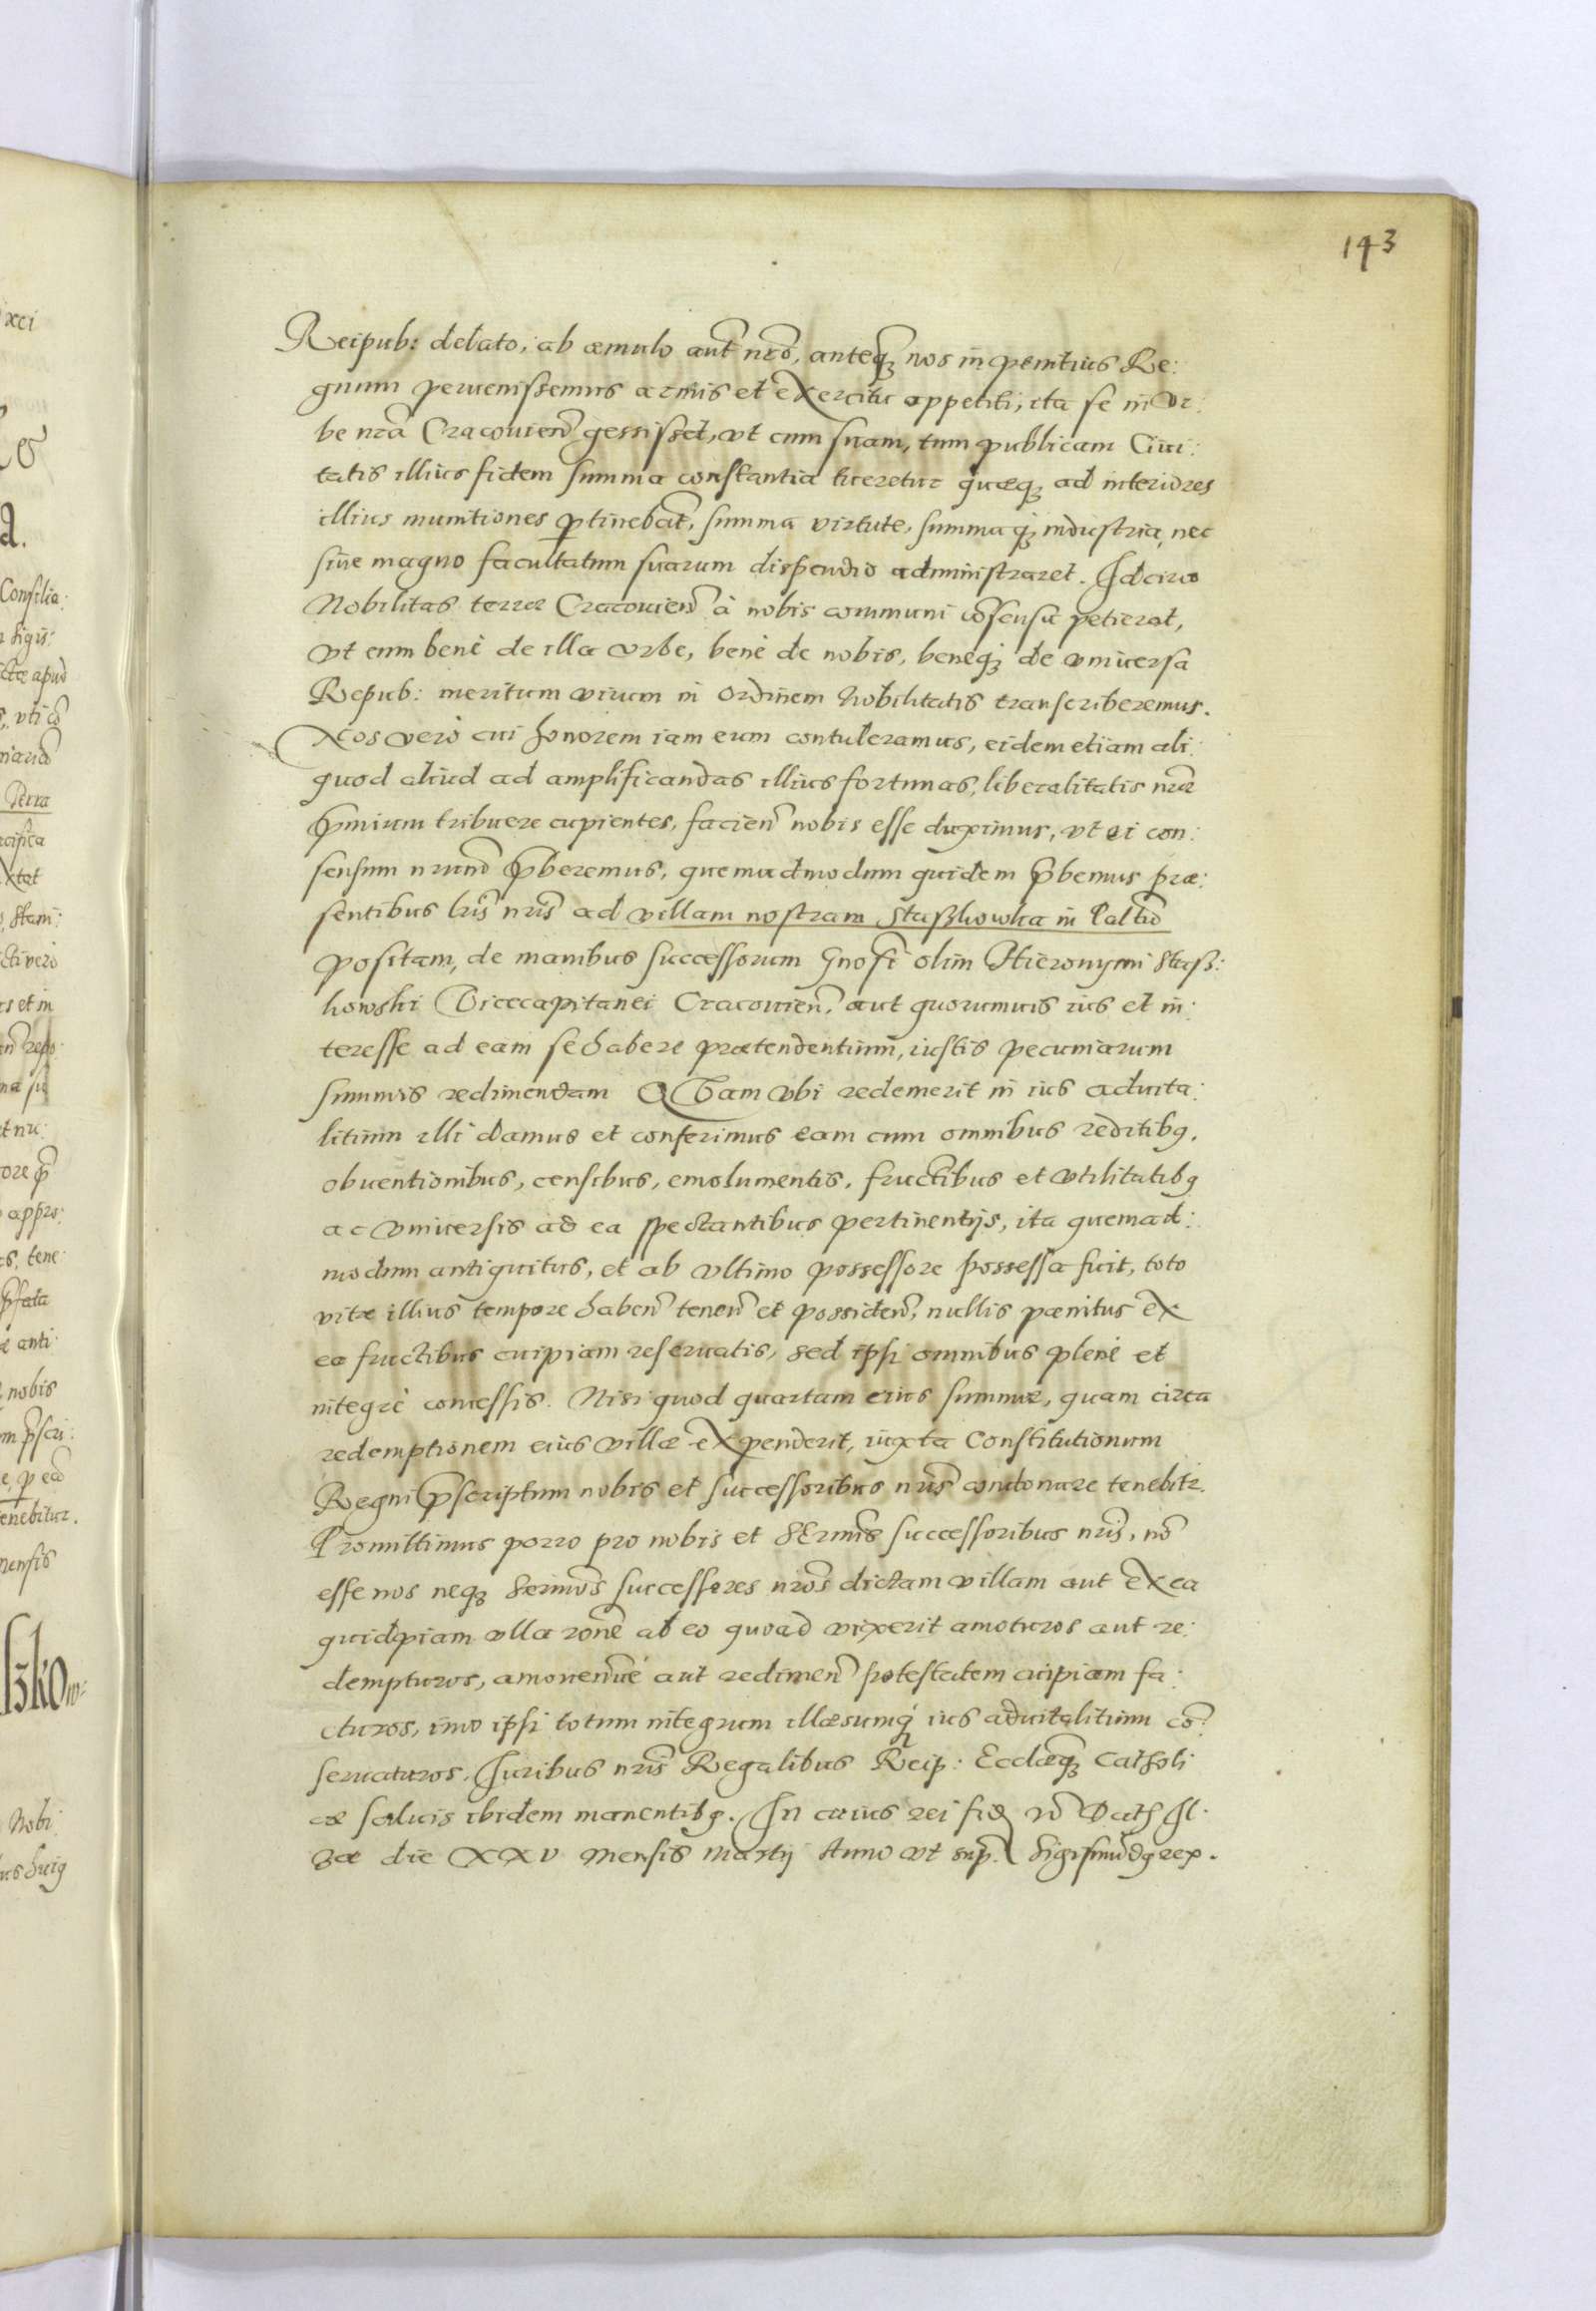 143
Reipub: delato, ab æmulo aūt nr̄o, anteq̄ȝ nos in penitius Re:
gnum peruenissemus armis et exercitu appetiti, ita se in Vr:
be nr̄a Cracouien̄ gessisset, vt cum suam, tum publicam Ciui:
tatis illius fidem summa constantia tueretur quæqȝ ad interiores
illius munitiones ꝑtinebāt, summa virtute, summaqȝ industria, nec
sine magno facultatum suarum dispendio administraret. Idcirco
Nobilitas terræ Cracouien̄ à nobis communi cōsensu petierat,
vt eum benè de illa vrbe, benè de nobis, beneqȝ de vniuersa
Repub: meritum virum in ordinem Nobilitatis transcriberemus.
Nos verò cui honorem iam eum contuleramus, eidem etiam ali:
quod aliud ad amplificandas illius fortunas, liberalitatis nr̄æ
p̄mium tribuere cupientes, facien̄ nobis esse duximus, vt ei con:
sensum nr̄um p̄beremus, quemadmodum quidem p̄bemus præ:
sentibus lr̄is nr̄is ad villam nostram Staßkowka in Palt̄io
positam, de manibus successorum Gnosī olim Hieronymi Staß:
kowski Vicecapitanei Cracouien̄, aut quorumuis ius et in:
teresse ad eam se habere prætendentium, iustis pecuniarum
summis redimendam Quam vbi redemerit in ius aduita:
litium illi damus et conferimus eam cum omnibus reditibꝯ,
obuentionibus, censibus, emolumentis, fructibus et vtilitatibꝯ
ac vniuersis ad ea spectantibus pertinentijs, ita quemad:
modum antiquitus, et ab vltimo possessore possessa fuit, toto
vitæ illius tempore haben̄ tenen̄ et possiden̄, nullis pænitus ex
ea fructibus cuipiam reseruatis, sed ipsi omnibus plenè et
integrè concessis. Nisi quod quartam eius summæ, quam circa
redemptionem eius villæ expenderit, iuxta Constitutionum
Regni p̄scriptum nobis et successoribus nr̄is condonare tenebitr.
Promittimus porro pro nobis et Sermīs successoribus nr̄is, nō
esse nos neqȝ Sermōs successores nr̄os dictam villam aut ex ea
quidpiam vlla rōne ab eo quoad vixerit amoturos aut re:
dempturos, amouen̄uè aut redimen̄ potestatem cuipiam fa:
cturos, imo ipsi totum integrum illæsumqȝ ius aduitalitium cō:
seruaturos. Iuribus nr̄is Regalibus Reip: Ecclæq̄ȝ Catholi
cæ saluis ibidem manentibꝯ. In cuius rei fidē Dath Il:
zæ die XXV Mensis Martij Anno vt sup. Sigismūdꝯ rex.